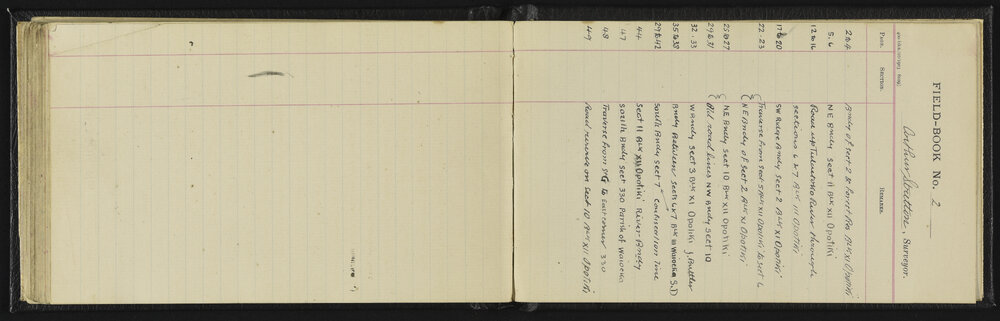 FIELD-BOOK No. 2
Arthur Stratton, Surveyor.
PAGE. SECTION. REMARKS.
2 to 4 Bndy of sect 2 & Forest Res Blk XI Opotiki
5.6 N E Bndy sect 11 Blk XII Opotiki
12 to 16 Road up River through
sections 6 & 7 Blk III Opotiki
17 to 20 SW Ridge Bndy sect 2 Blk XI Opotiki
22-23 Traverse from sect 5 Blk XII Opotiki to sect 6
N E Bndy of sect 2 Blk XI Opotiki
25 to 27 N.E. Bndy sect 10 Blk XII Opotiki
29 to 31 Old road lines NW Bndy sect 10
32.33 W Bndy sect 3 Blk XI Opotiki J. Buttler
35 to 38 Bndy Between sects 6 & 7 Blk III Waioeka S.D
39 to 42 South Bndy sect 7 Confiscation line
44 Sect 11 Blk XII Opotiki River Bndy
47 South Bndy sect 330 Parish of Waioeka
48 Traverse from to East corner 330
49 Road on sect 10 Blk XI Opotiki